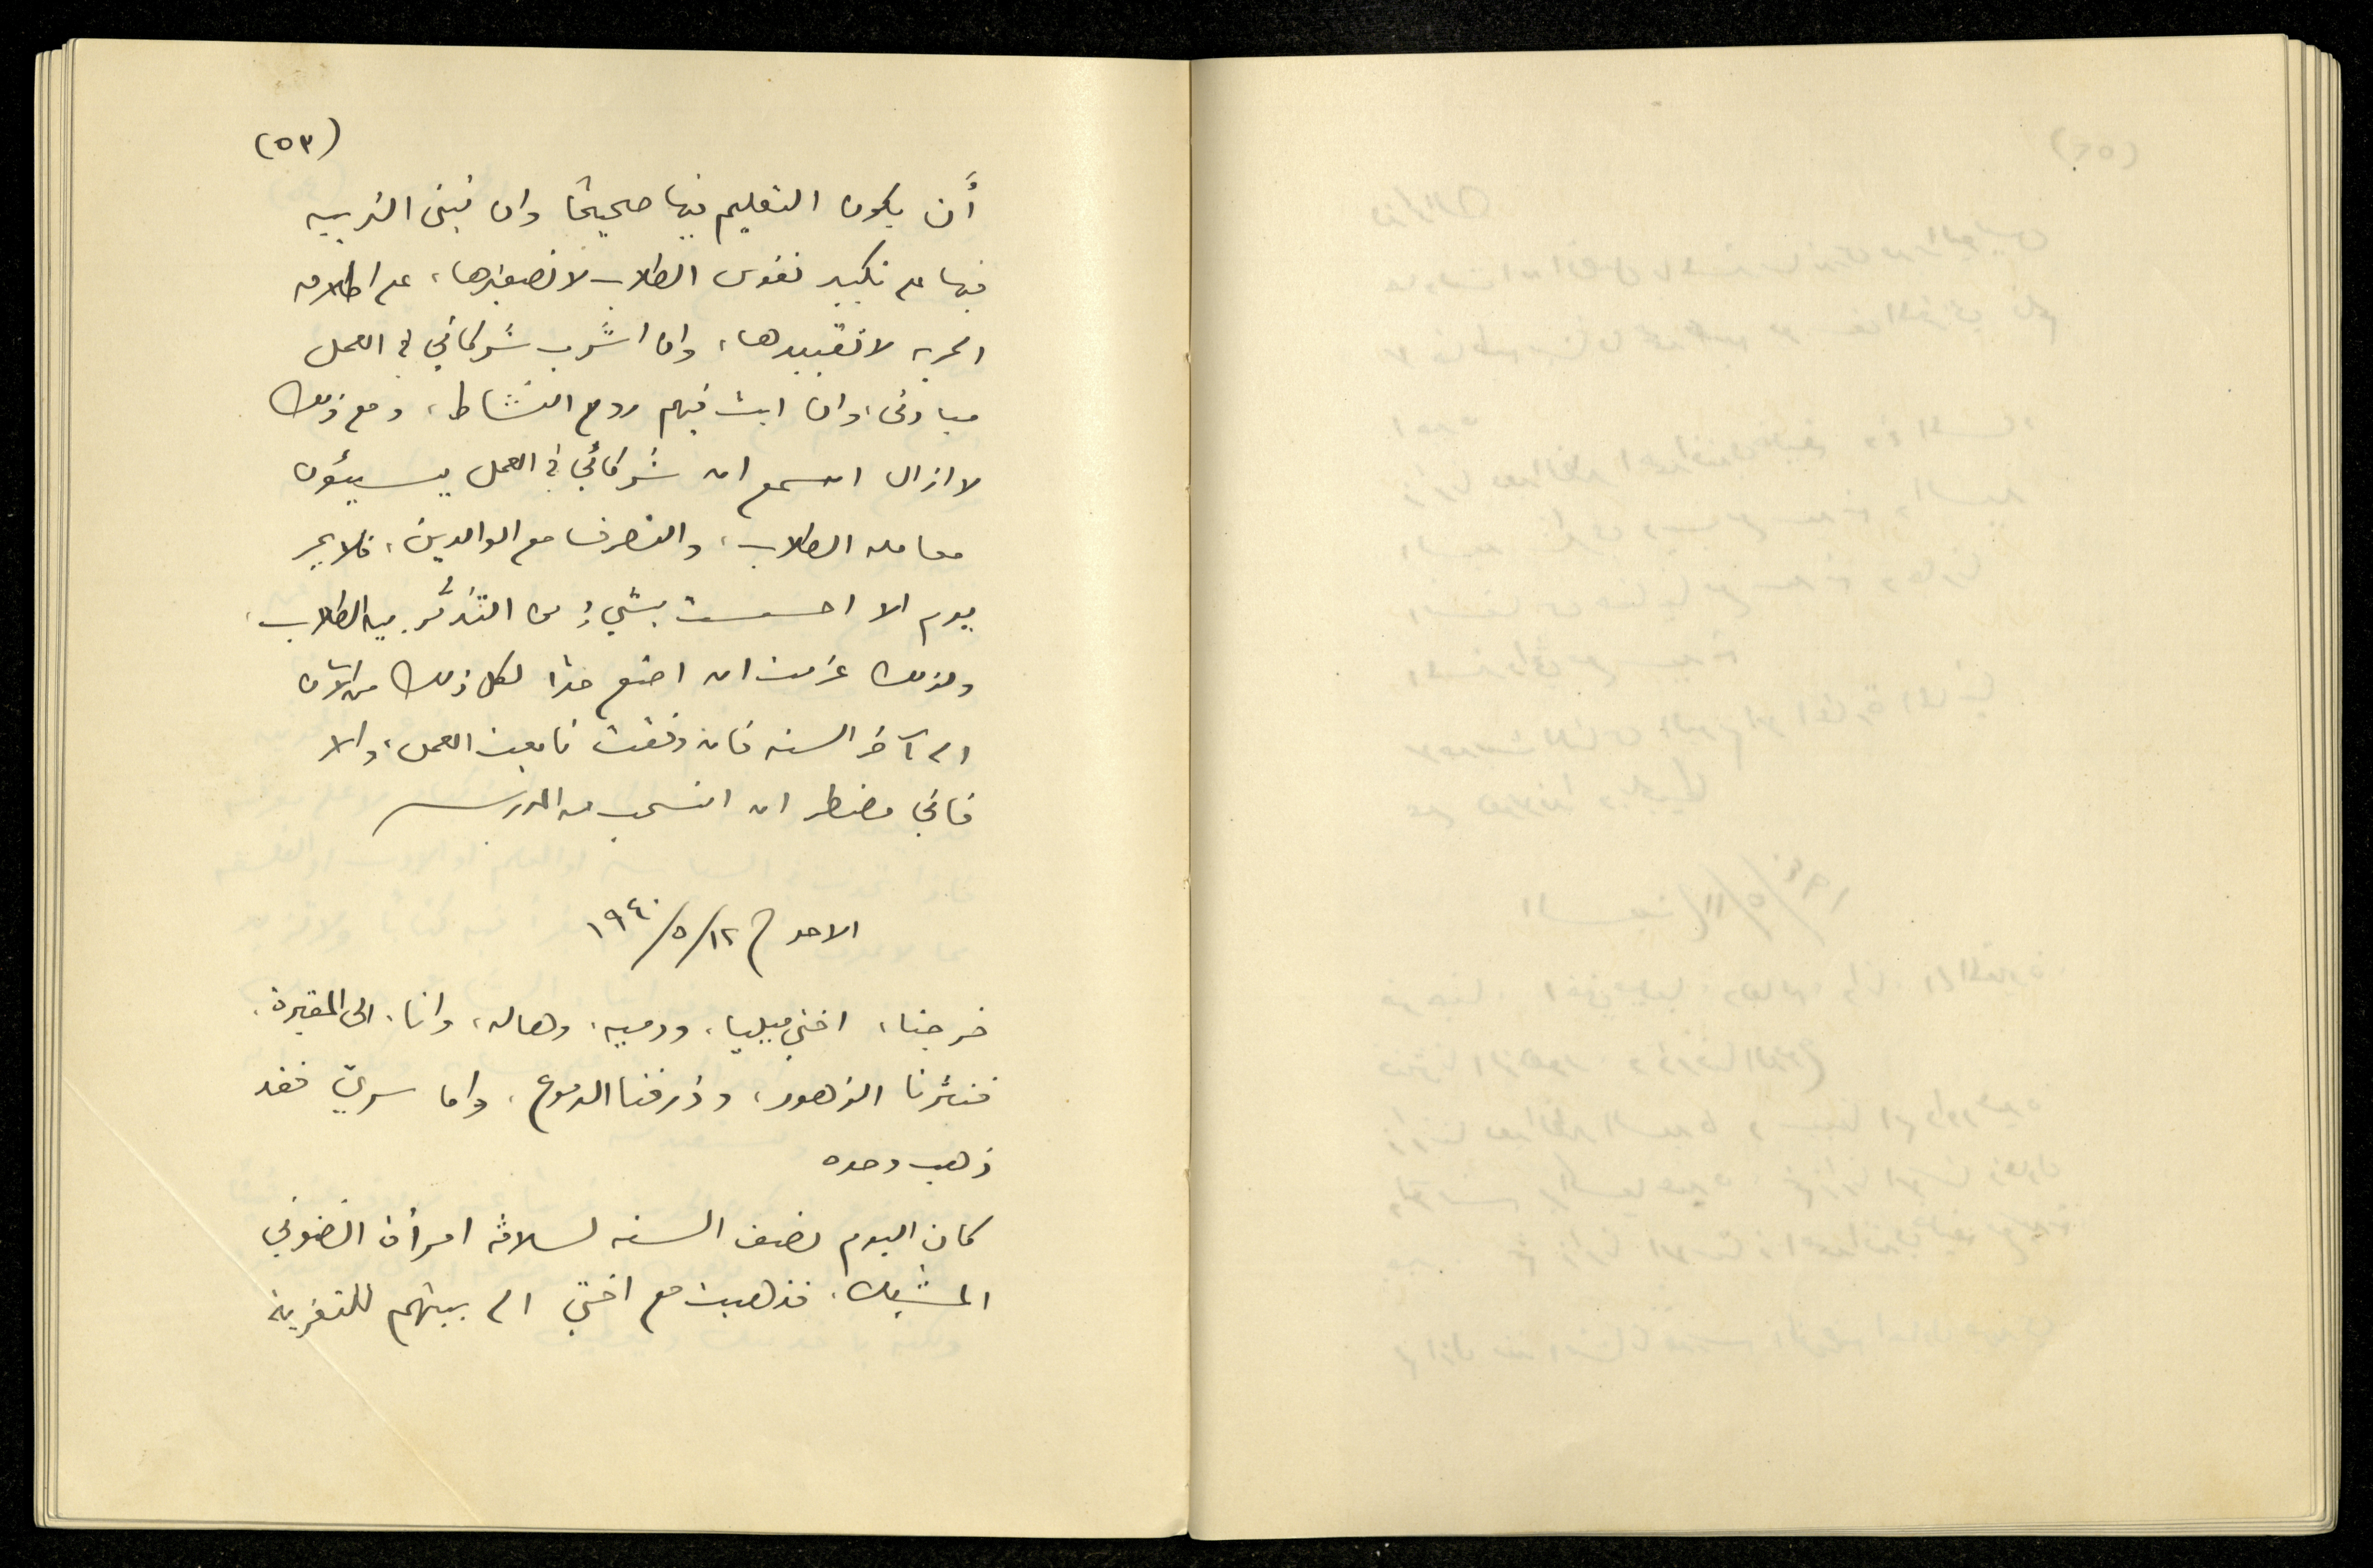 (٥٣)
أَن يكون التعليم فيها صحيحًا وان تبنى التربيه
فيها على تكبير نفوس الطلاب لا تصغيرها، على اطلاق
الحريه لا تقييدها، وان اشرّب شركائي في العمل
مبادئي، وان ابث فيهم روح النشاط، ومع ذلك
لا ازال اسمع ان شركائي في العمل يسيئون
معامله الطلاب، والتصرف مع الوالدين، فلا يمر
يوم الا احسست بشيءٍ من التذمُّر بين الطلاب،
ولذلك عزمت ان اضع حدًا لكل ذلك من الآن
الى آخر السنه فان وفقت تابعت العمل، والا
فاني مضطر ان انسحب من المدرسه
الاحد ١٢/٥/١٩٤٠
خرجنا، اختي ميليا، ودميه، وهاله، وانا، الى المقبرة،
فنثرنا الزهور، وذرفنا الدموع، واما سريّ فقد
ذهب وحده
كان اليوم نصف السنه لسلافه امرأة انضوني
المشبك، فذهبت مع اختي الى بيتهم للتعزية